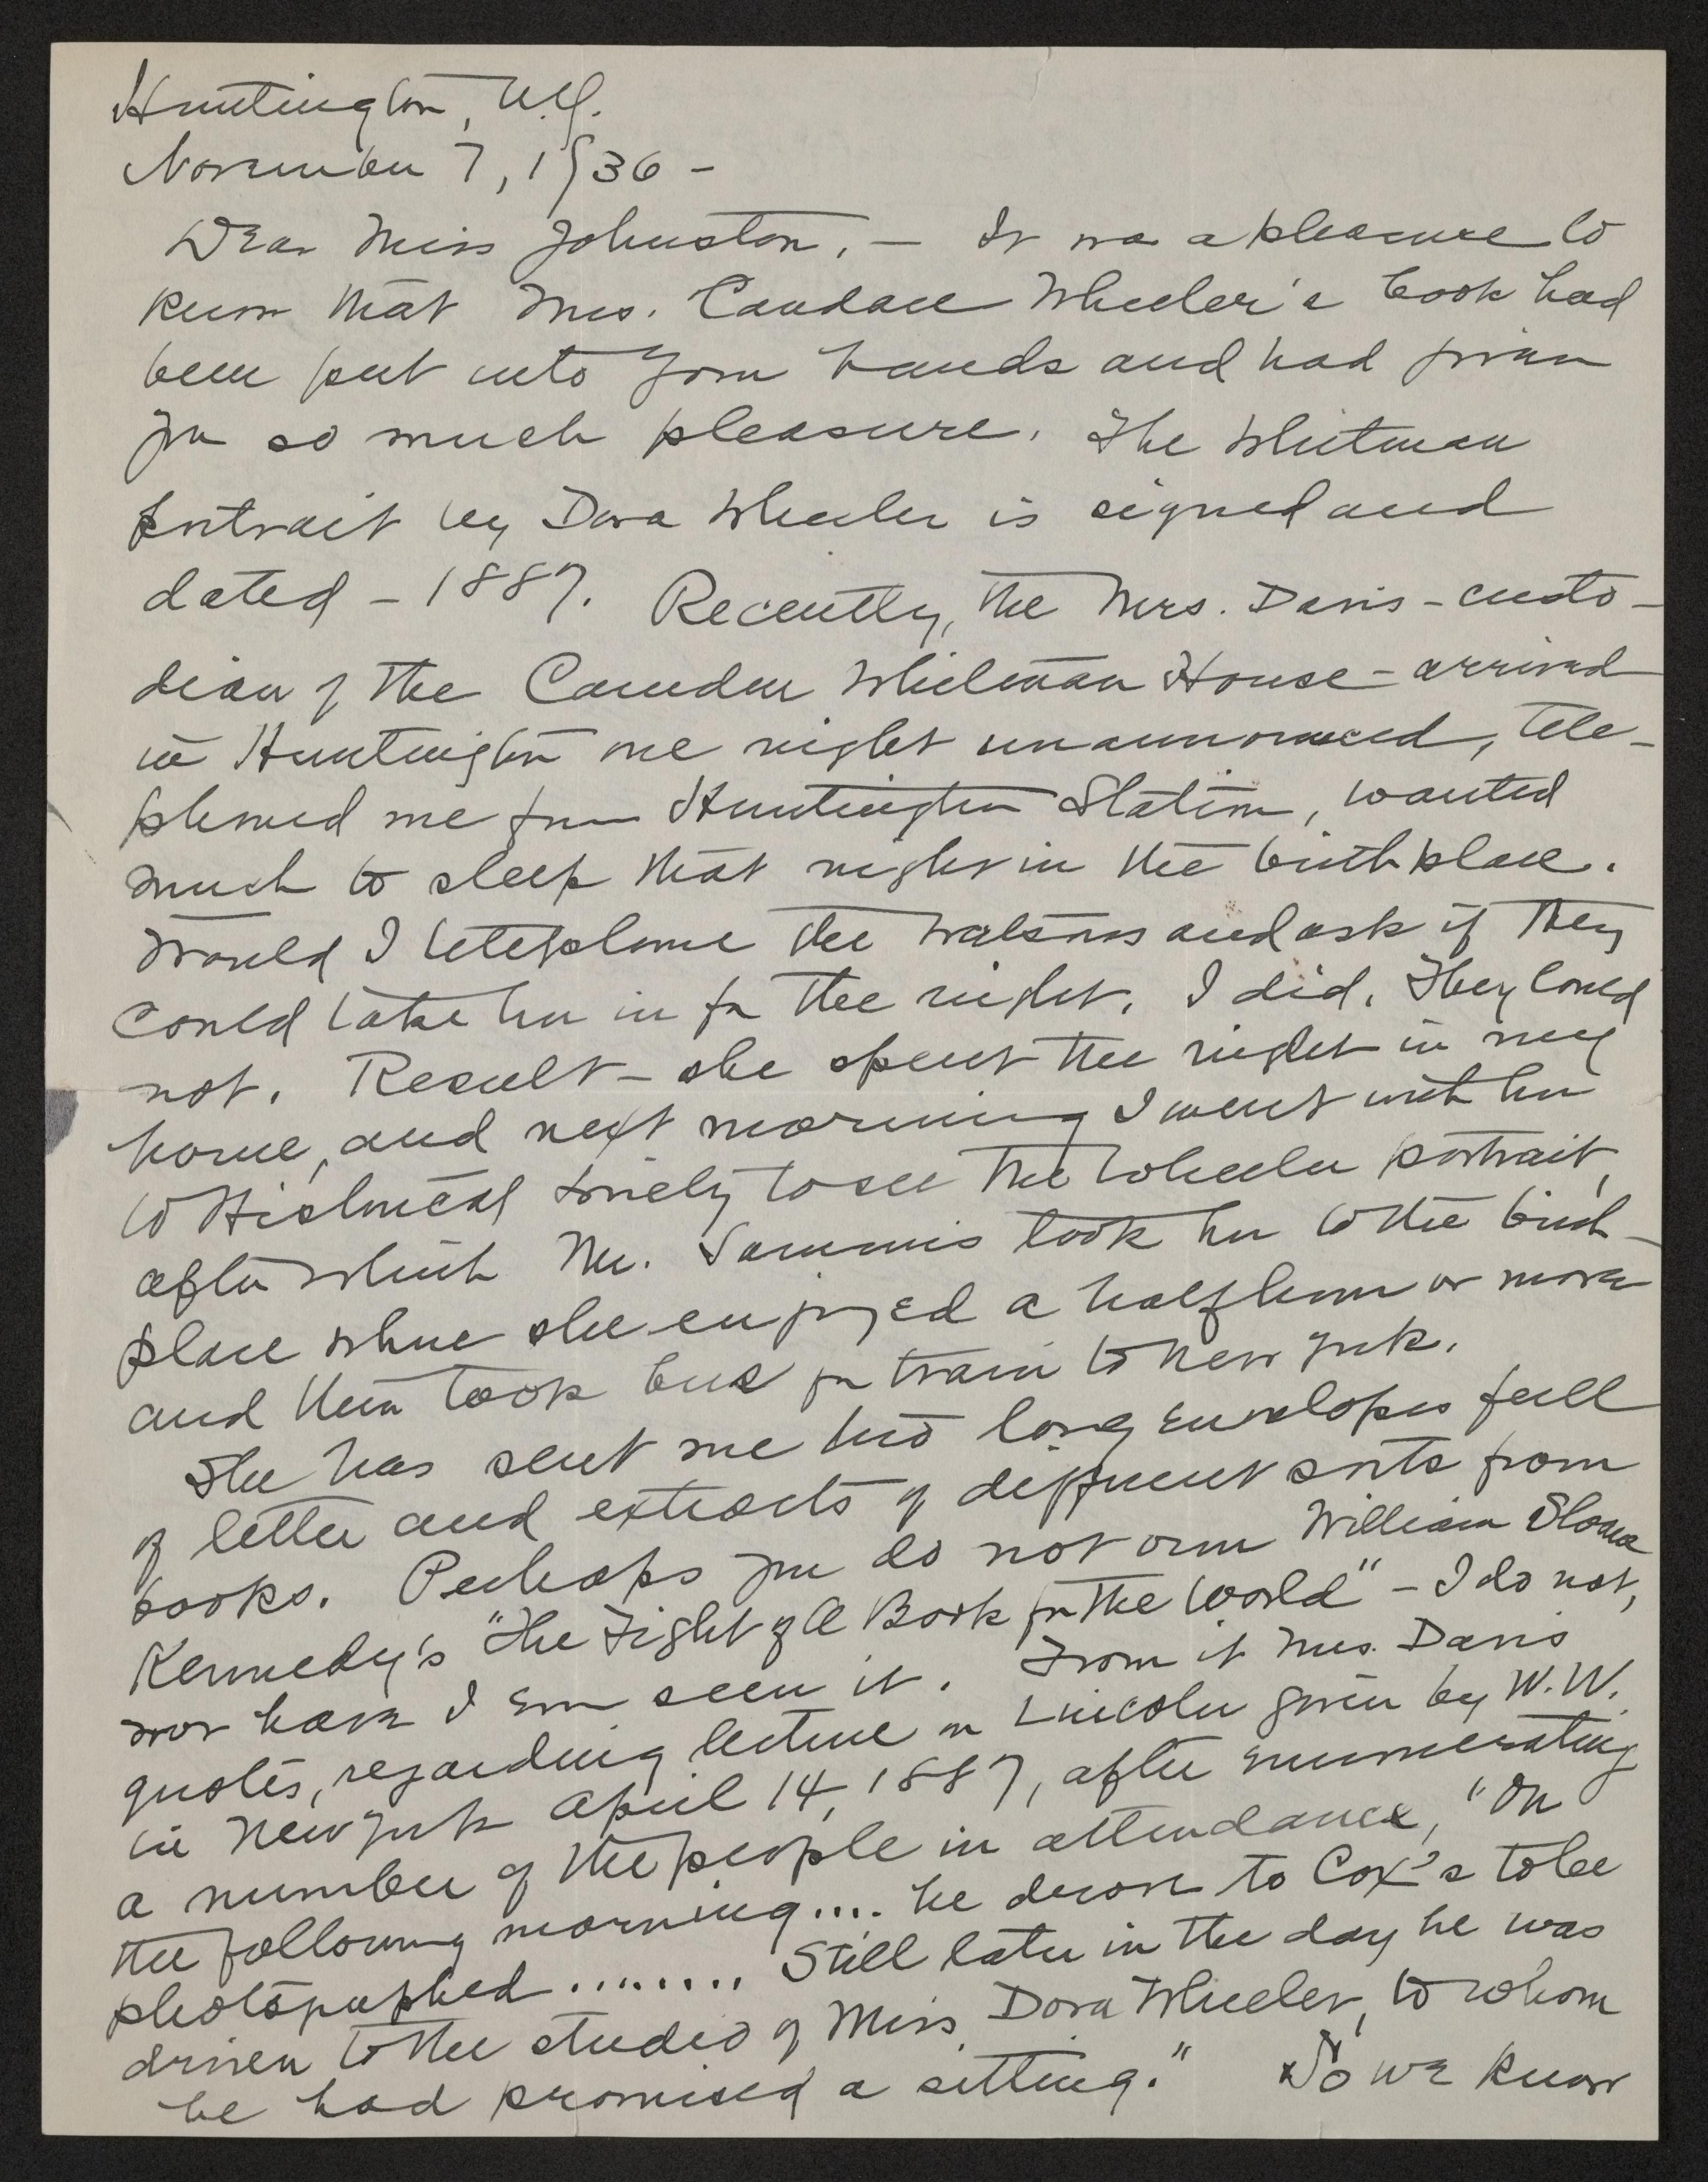 Huntington, N.Y.
November 7, 1936 -
Dear Miss Johnston, - It was a pleasure to
know that Mrs. Candace Wheeler's book had
been put into your hands and had given
you so much pleasure. The Whitman
portrait by Dora Wheeler is signed and
dated - 1887. Recently, the Mrs. Davis - custo-
dian of the Camden Whitman House - arrived
in Huntington one night unannounced, tele-
phoned me from Huntington Station, wanted
much to sleep that night in the birthplace.
Would I telephone the Watsons and ask if they
could take her in for the night. I did. They could
not. Result - she spent the night in my
home, and next morning I went with her
to Historical Society to see the Wheeler portrait,
after which Mr. Sammis took her to the birth-
place where she enjoyed a half hour or more
and then took bus for train to New York.
She has sent me two long envelopes full
of letter and extracts of different sorts from
books. Perhaps you do not own William Sloane
Kennedy's "The Fight of a Book for the World" - I do not,
nor have I ever seen it. From it Mrs. Davis
quotes, regarding lecture on Lincoln given by W.W.
in New York April 14, 1887, after enumerating
a number of the people in attendance, "On
the following morning.... he drove to Cox's to be
photographed ........ Still later in the day he was
driven to the studio of Miss Dora Wheeler, to whom
he had promised a sitting." So we know